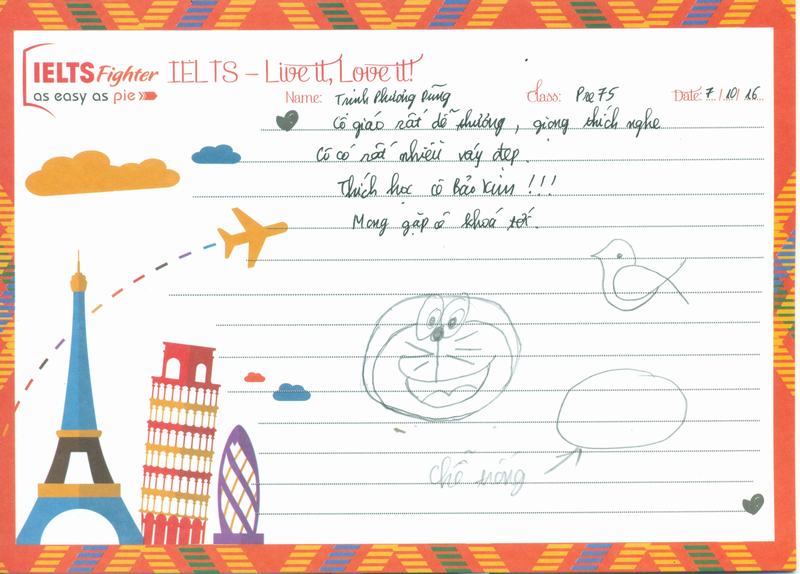 IELTS Fighter
as easy as pie
IELTS – Live it, Love it!
Name: Trịnh Phương Dũng Class: Pre 75 Date: 7 / 10 / 16
Cô giáo rất dễ thương, giọng thích nghe
Cô có rất nhiều váy đẹp.
Thích học cô Bảo Kim !!!
Mong gặp cô khoá tới.
chỗ trống